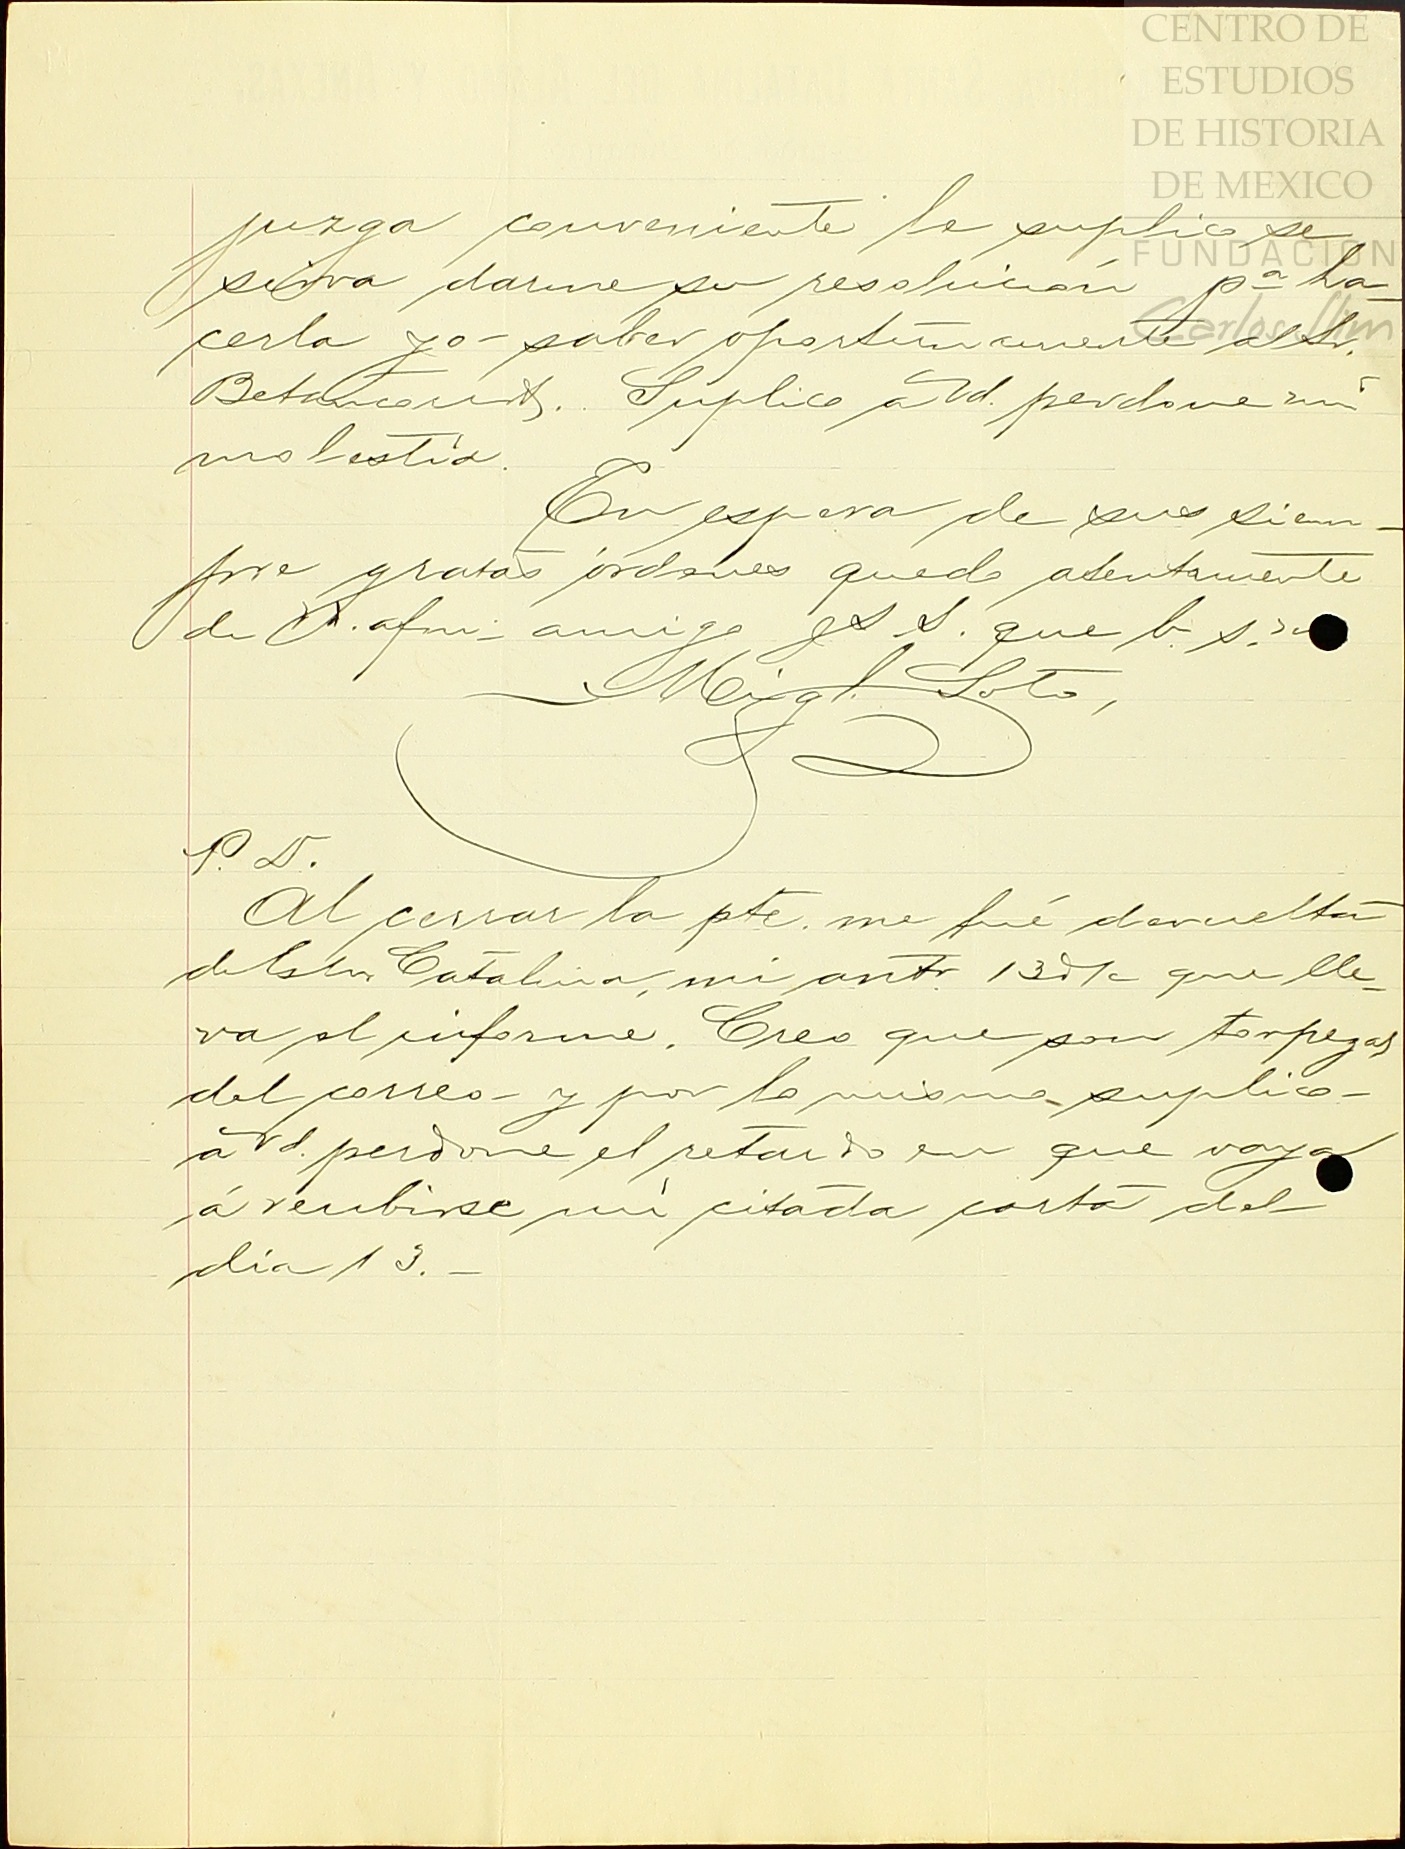 CENTRO DE
ESTUDIOS
DE HISTORIA
DE MEXICO
FUNDACIÓN
Carlos Slim
juzga conveniente le suplico se
sirva darme su resolución pª ha-
cerla yo saber oportunamente al Sr.
Betancourt. Suplico á Vd. perdone mi
molestia.
En espera de sus siem-
pre gratas órdenes quedo atentamente
de V. afmo. amigo y S. S. que b. s. m.
Migl. Soto,
P. D.
Al cerrar la pte. me fué devuelta
de Catalina, mi antr. 13 que lle-
va el informe. Creo que son torpezas
del correo y por lo mismo suplico
á Vd. perdone el retardo en que vaya
á recibirse mi citada carta del
día 13.-